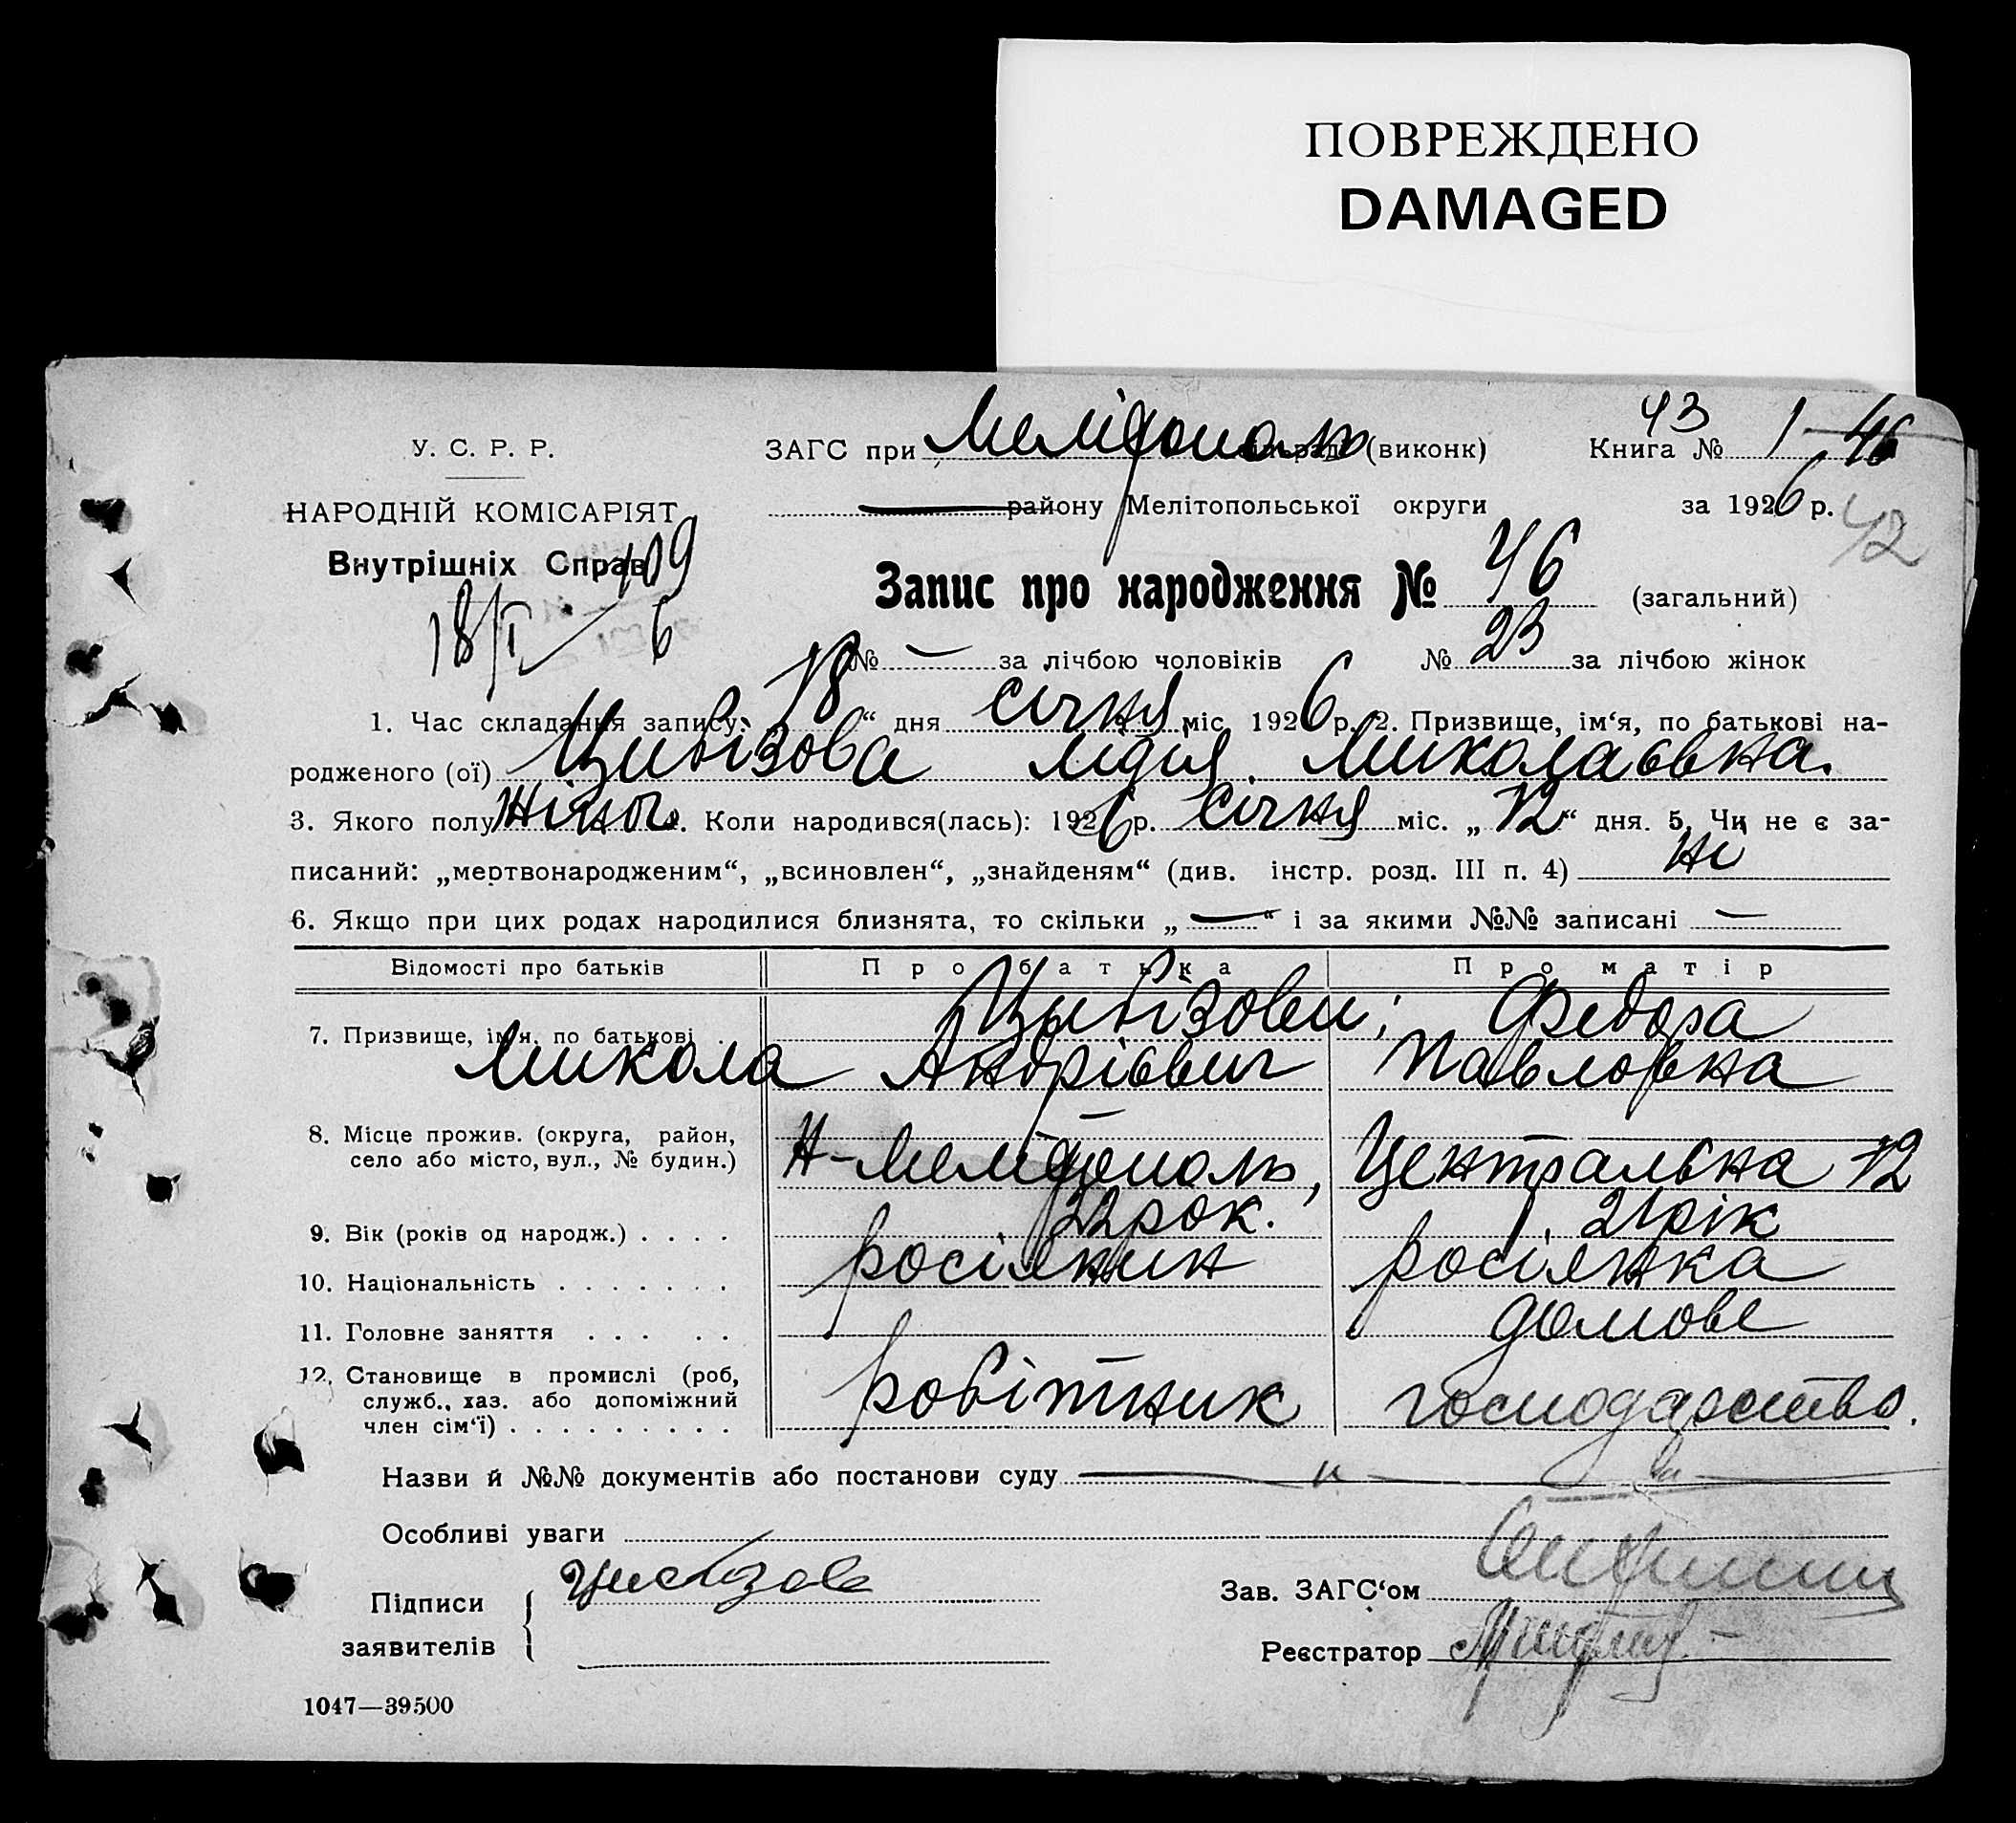 ПОВРЕЖДЕНО
DAMAGED
43
У. С. Р. Р. ЗАГС при Мелітополь (виконк) Книга № 1 46
НАРОДНІЙ КОМІСАРІЯТ району Мелітопольської округи за 1926 р. 42
Внутрішніх Справ 109
Запис про народження № 46 (загальний)
18/I 6
№ — за лічбою чоловіків № 23 за лічбою жінок
1. Час складання запису: 18 “ дня січня міс. 1926 р. 2. Призвище, ім‘я, по батькові на-
родженого (ої) Цибізова Лідія Миколаєвна.
3. Якого полу жіноч. Коли народився(лась): 1926 р. січня міс. „ 12 “ дня. 5. Чи не є за-
писаний: „мертвонародженим“, „всиновлен“, „знайденям“ (див. інстр. розд. III п. 4) ні
6. Якщо при цих родах народилися близнята, то скільки „ — “ і за якими №№ записані —
Відомості про батьків Про батька Про матір
Цибізови; Федора
7. Призвище, ім‘я, по батькові .
Микола Андрієвич Павловна
8. Місце прожив. (округа, район,
село або місто, вул., № будин.) Н-Мелітополь, Центральна 12
9. Вік (років од народж.) . . . . 22 рок. 21 рік
10. Національність . . . . . . . росіянин росіянка
11. Головне заняття . . . . . домове
12. Становище в промислі (роб,
служб., хаз. або допоміжний робітник господарство.
член сім‘ї) . . . . . . . . .
Назви й №№ документів або постанови суду —
Особливі уваги
Підписи Цибизов Зав. ЗАГС‘ом
заявителів Реєстратор
1047—39500